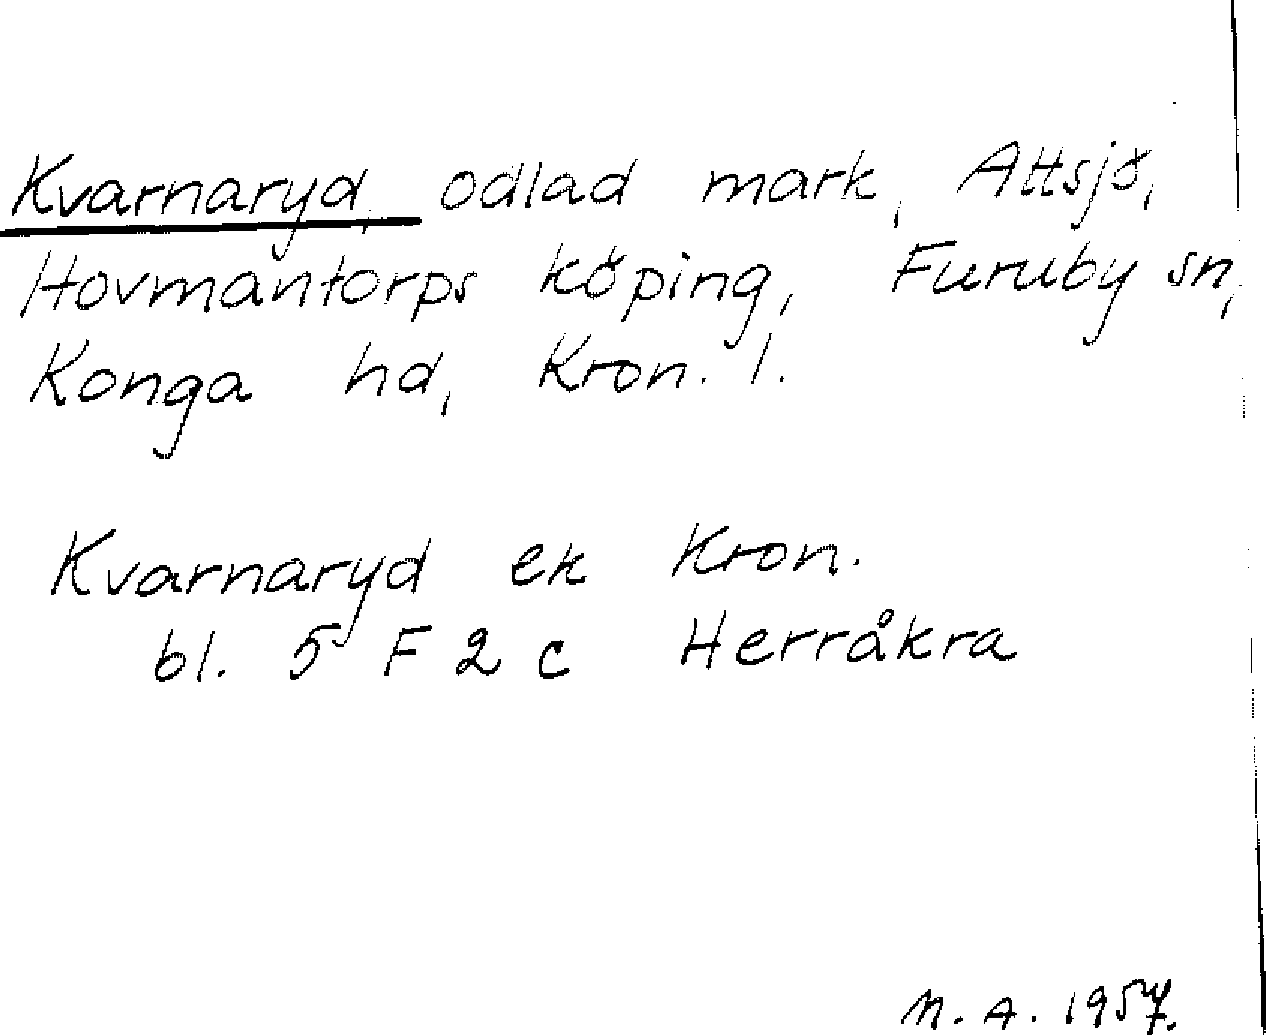 Kvarnaryd, odlad mark, Attsjö,
Hovmantorps köping, Furuby sn,
Konga hd, Kron. l.
Kvarnaryd ek Kron.
bl. 5 F 2 c Herråkra
M. A. 1957.